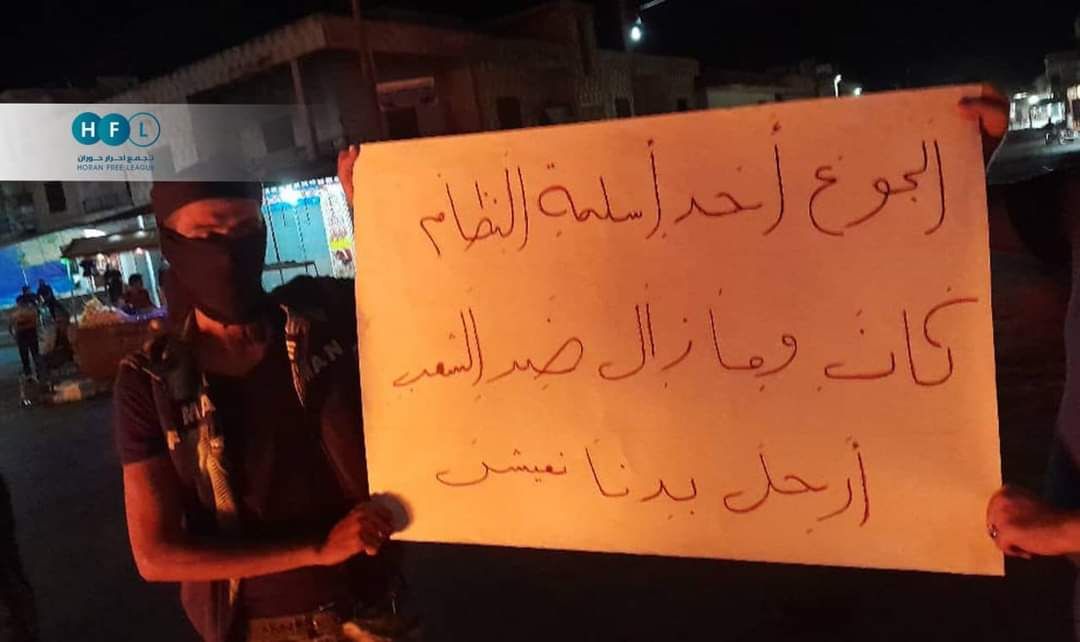 HFL
تجمع أحرار حوران
HORAN FREE LEAGUE
الجوع أحد أسلحة النظام
كان وما زال ضد الشعب
أرحل بدنا نعيش